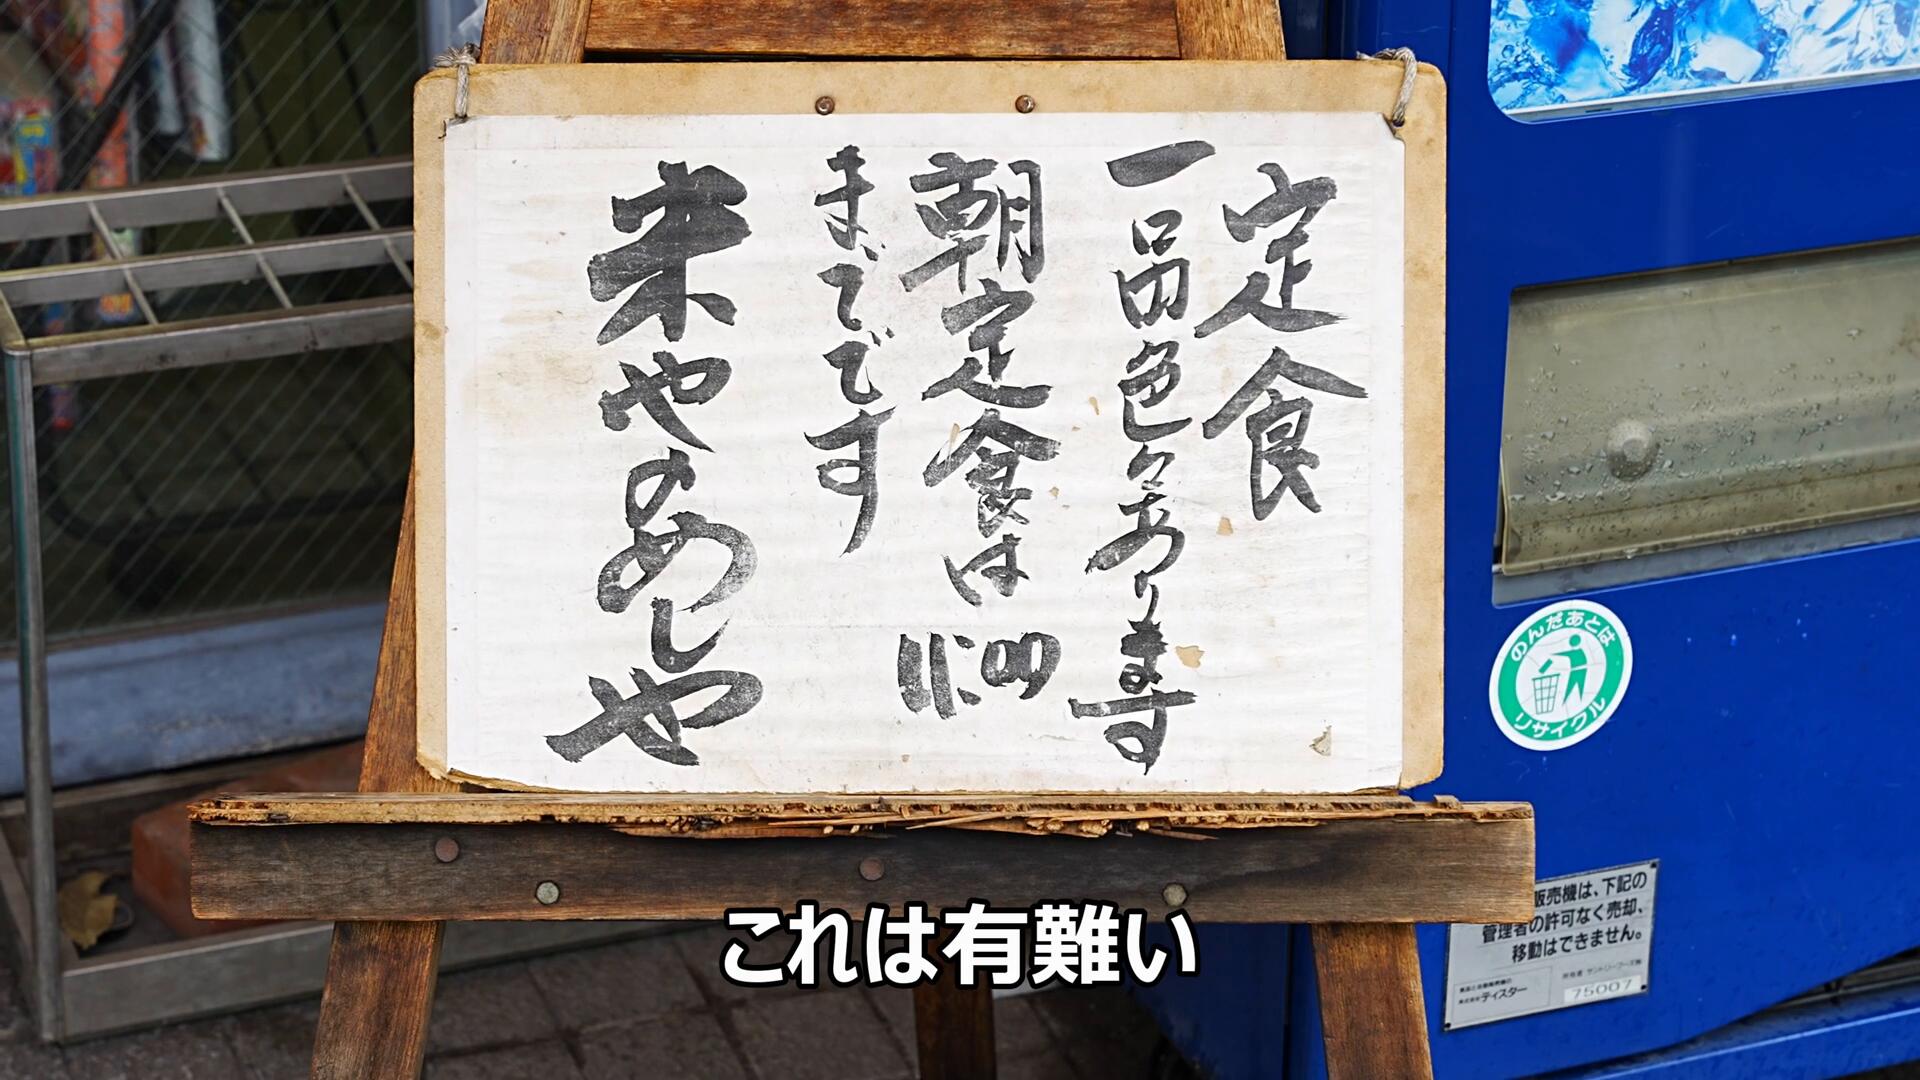 定食
一品色々あります
朝定食は 11:00
までです
米やのめしや
のんだあとは
リサイクル
販売機は、下記の
管理者の許可なく売却、
移動はできません。
ティスター
75007
これは有難い